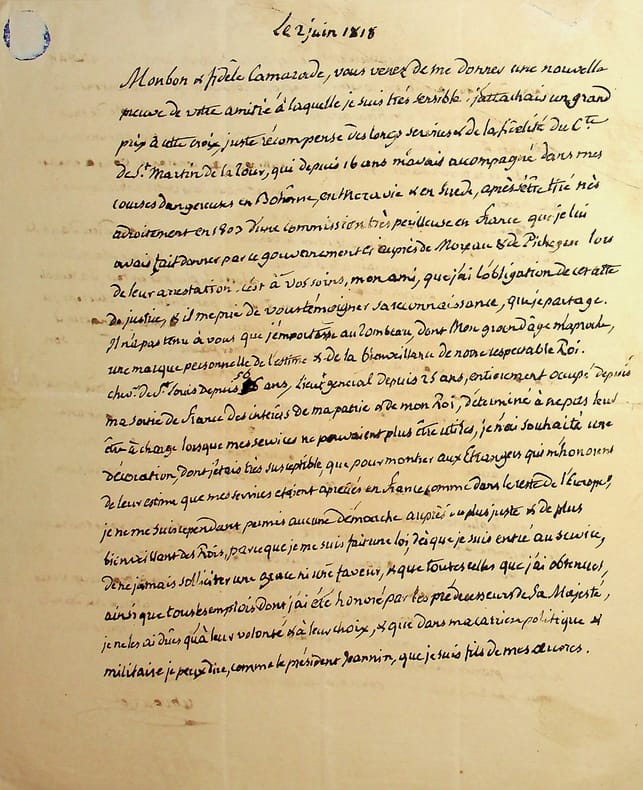 Le 2 juin 1818
Mon bon & fidèle Camarade, vous venez de me donner une nouvelle
preuve de votre amitié à laquelle je suis très sensible. j'attachais un grand
prix à cette croix, juste récompense des longs services & de la fidélité du Cte
de St Martin de la Tour, qui depuis 16 ans m'avais accompagné dans mes
courses dangereuses en Bohême, en Moravie & en Suede, après s'être tiré très
adroitement en 1803 d'une commission très perilleuse en france que je lui
avais fait donner par ce gouvernement cy auprès de Moreau & de Pichegru lors
de leur arrestation. c'est à vos soins, mon ami, que j'ai l'obligation de cet acte
de justice, & il me prie de vous témoigner sa reconnaissance, que je partage.
Il n'a pas tenu à vous que j'emportasse au Tombeau, dont Mon grand âge m'aproche,
une marque personnelle de l'estime & de la bienveillance de notre respectable Roi.
chevr. de St Louis depuis 56 ans, lieut general depuis 25 ans, entierement occupé depuis
ma sortie de france des intérêts de ma patrie & de mon Roi, déterminé à ne pas leur
être à charge lorsque mes services ne pouvaient plus être utiles, je n'ai souhaité une
décoration, dont j'etais très susceptible, que pour montrer aux Etrangers qui m'honorent
de leur estime que mes services etaient apreciés en france comme dans le reste de l'Europe,
je ne me suis cependant permis aucune démarche auprès du plus juste & de plus
bienveillant des Rois, parce que je me suis fait une loi, dès que je suis entré au service,
de ne jamais solliciter une grace ni une faveur, & que toutes celles que j'ai obtenues,
ainsi que tous les emplois dont j'ai été honoré par les prédecesseurs de Sa Majesté,
je ne les ai dûes qu'à leur volonté & à leur choix, & que dans ma carriere politique &
militaire je peux dire, comme le président Jeannin, que je suis fils de mes œuvres.